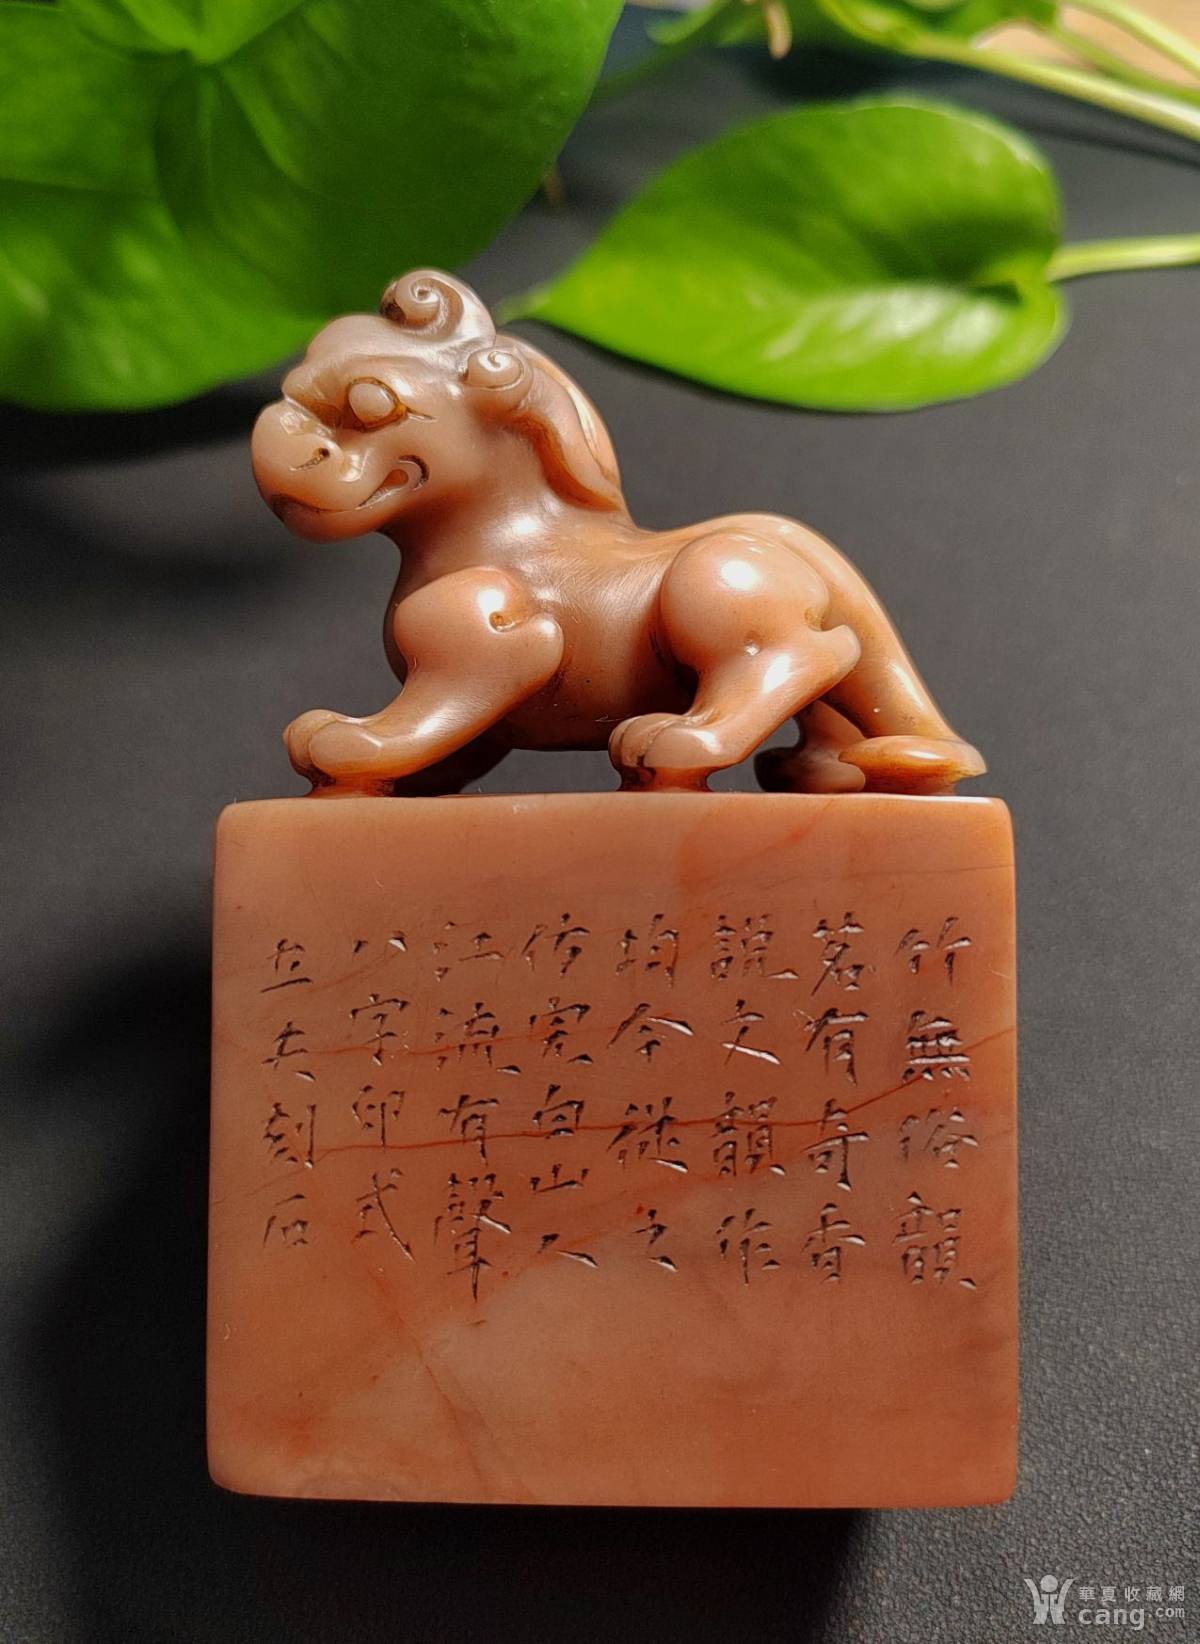 竹無俗韻
茗有奇香
説文韻作
均今從之
仿完白山人
江流有聲
八字印式
立夫刻石
華夏收藏網
cang.com